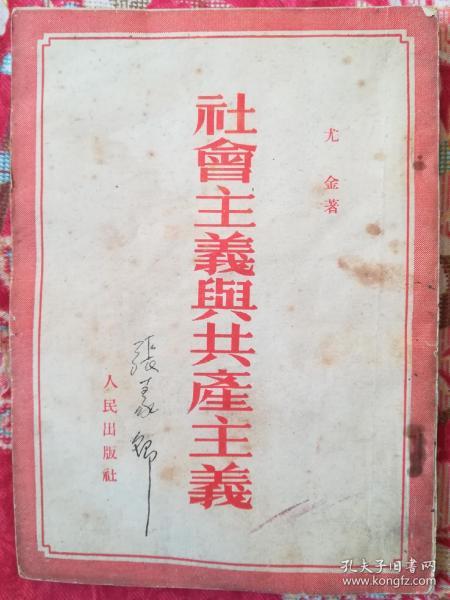 尤金著
社會主義與共產主義
張義卿
人民出版社
孔夫子旧书网
www.kongfz.com